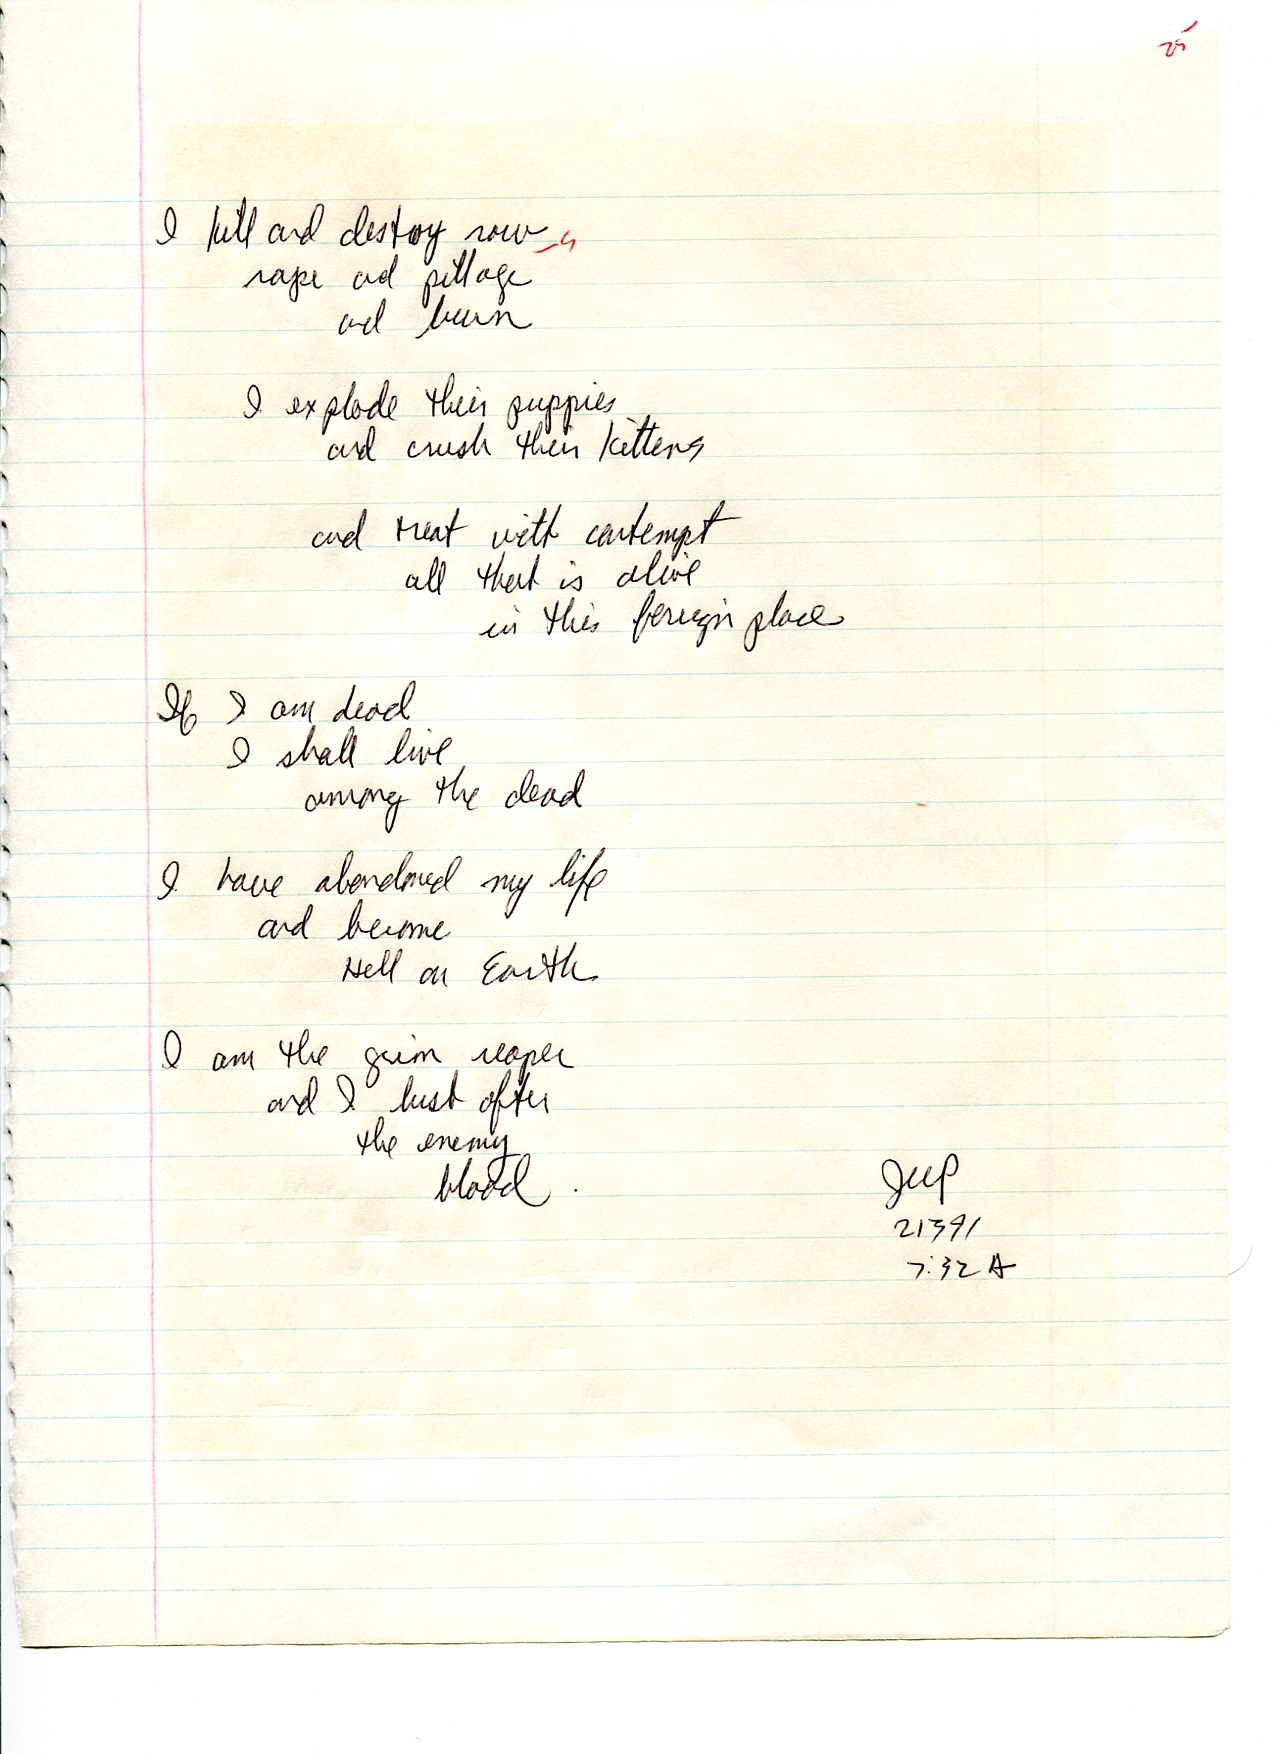 25
I kill and destroy now
rape and pillage
and burn
I explode their puppies
and crush their kittens
and treat with contempt
all that is alive
in this foreign place
If I am dead
I shall live
among the dead
I have abandoned my life
and become
Hell on Earth
I am the grim reaper
and I lust after
the enemy
blood.
21391
7:32 A